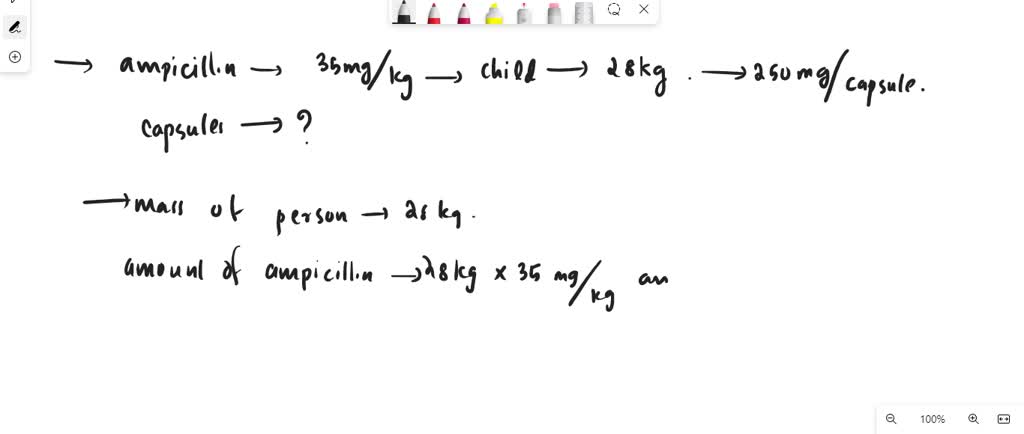 → ampicillin → 35mg/kg → child → 28kg. → 250mg/capsule.
capsules → ?
→ mass of person → 28 kg.
amount of ampicillin → 28kg × 35 mg/kg am
100%